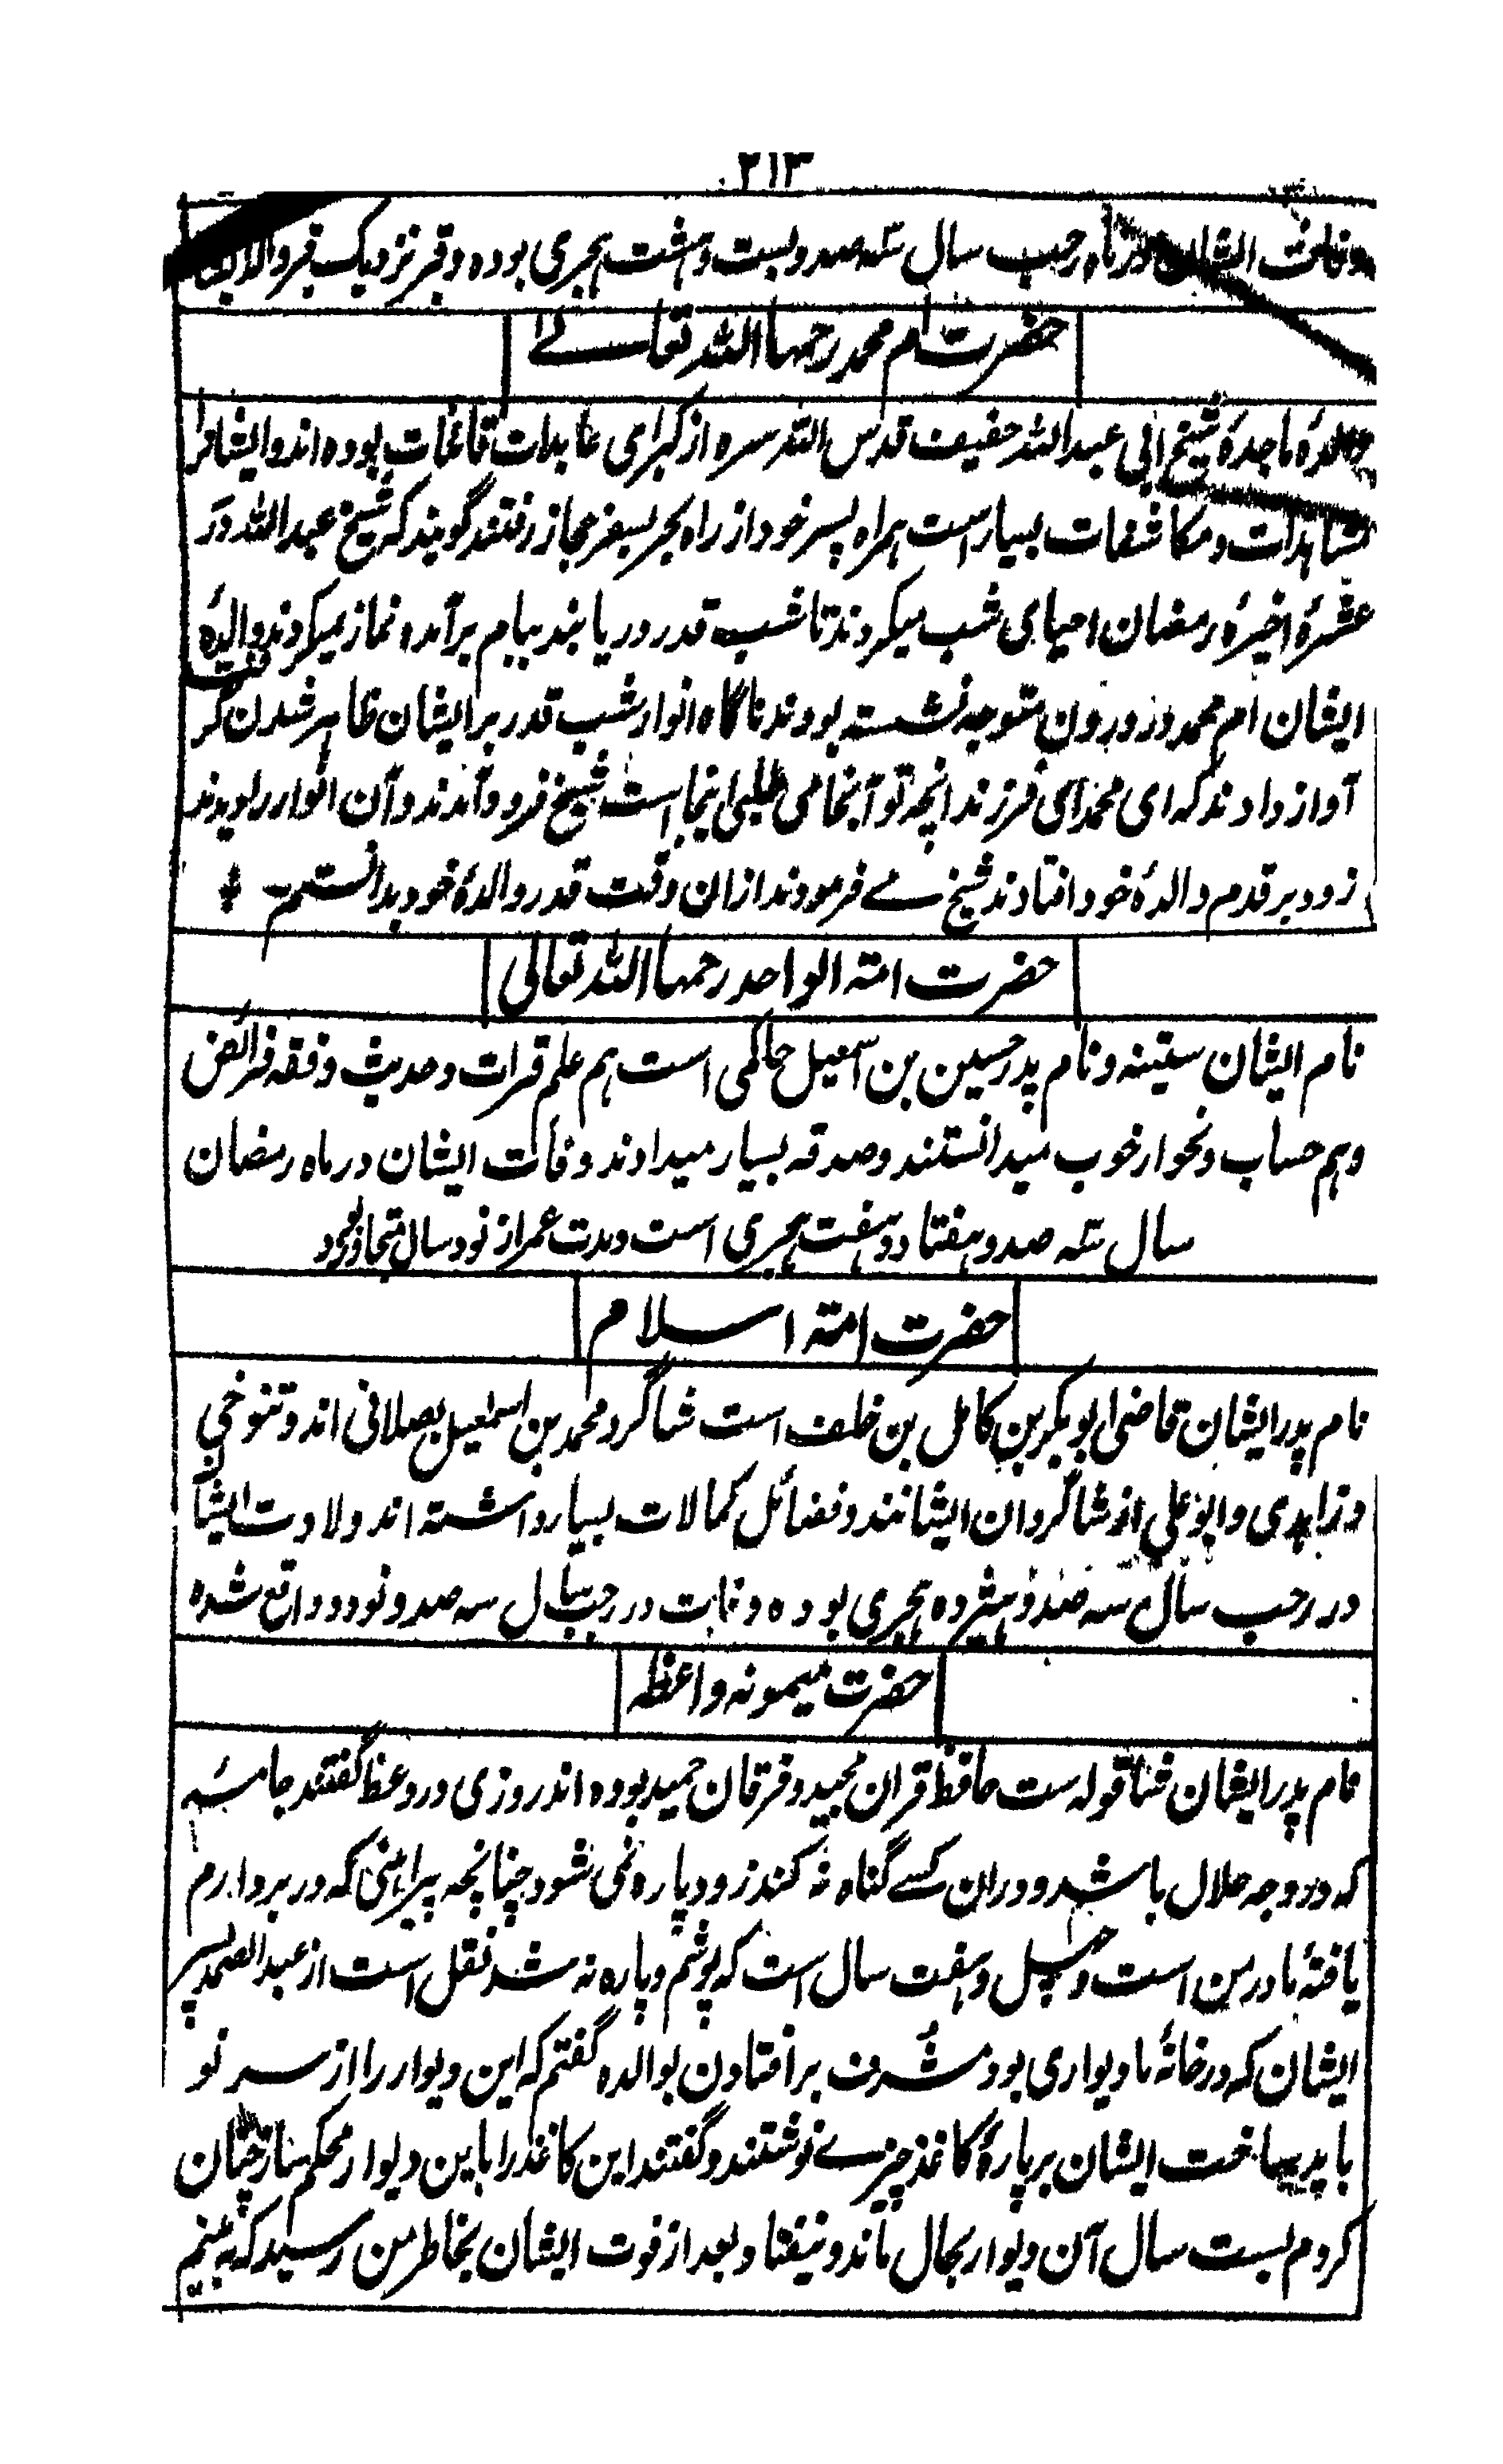 ۲۱۳
وفات ایشان در ماه رجب سال سه صد و بست و هشت هجری بوده و قبر نزدیک بقبر والد
حضرت ام محمد رحمها الله تعالے
والدهٔ ماجدهٔ شیخ ابی عبدالله خفیف قدس الله سره از کبرای عابدات قانتات بوده اند و ایشانرا
مشاهدات و مکاشفات بسیار است همراه پسر خود از راه بحر بسفر حجاز رفتند گویند که شیخ عبدالله در
عشرهٔ اخیرهٔ رمضان احیای شب میکردند تا شب قدر دریابند ببام برآمده نماز میکردند والدهٔ
ایشان ام محمد در درون متوجه نشسته بودند ناگاه انوار شب قدر بر ایشان ظاهر شدن گرفت
آواز دادند که ای محمد ای فرزند انچه تو آنجا می طلبی اینجا است شیخ فرود آمدند و آن انوار را دیدند
زود بر قدم والدهٔ خود افتادند شیخ مے فرمودند ازان وقت قدر والدهٔ خود بدانستم
حضرت امته الواحد رحمها الله تعالی
نام ایشان ستیته و نام پدر حسین بن اسمعیل حاکمی است هم علم قرات و حدیث و فقه فرائض
و هم حساب و نحو از خوب میدانستند و صدقه بسیار میدادند وفات ایشان در ماه رمضان
سال سه صد و هفتاد و هفت هجری است و مدت عمر از نود سال متجاوز بود
حضرت امته اسلام
نام پدر ایشان قاضی ابوبکر بن کامل بن خلف است شاگرد محمد بن اسمعیل بصلانی اند و تنوخی
و زاهدی و ابو علی از شاگردان ایشانند و فضائل کمالات بسیار داشته اند ولادت ایشان
در رجب سال سه صد و هشرده هجری بوده وفات در رجب سال سه صد و نود و واقع شده
حضرت میمونه واعظه
نام پدر ایشان شاقوله ست حافظ قران مجید و فرقان حمید بوده اند روزی در وعظ گفتند جامهٔ
که در وجه حلال باشد و دران کسے گناه نه کند زود پاره نمی شود چنانچه پیراهنی که در بر دارم
یافتهٔ مادر من است و چهل و هفت سال است که پوشم و پاره نه شد نقل است از عبدالصمد پسر
ایشان که در خانهٔ ما دیواری بود مشرف بر افتادن بوالده گفتم که این دیوار را از سر نو
باید ساخت ایشان بر پارهٔ کاغذ چیزے نوشتند و گفتند این کاغذ را باین دیوار محکم ساز چنان
کردم بست سال آن دیوار بحال ماند و نیفتاد بعد از فوت ایشان بخاطر من رسید که به بینم